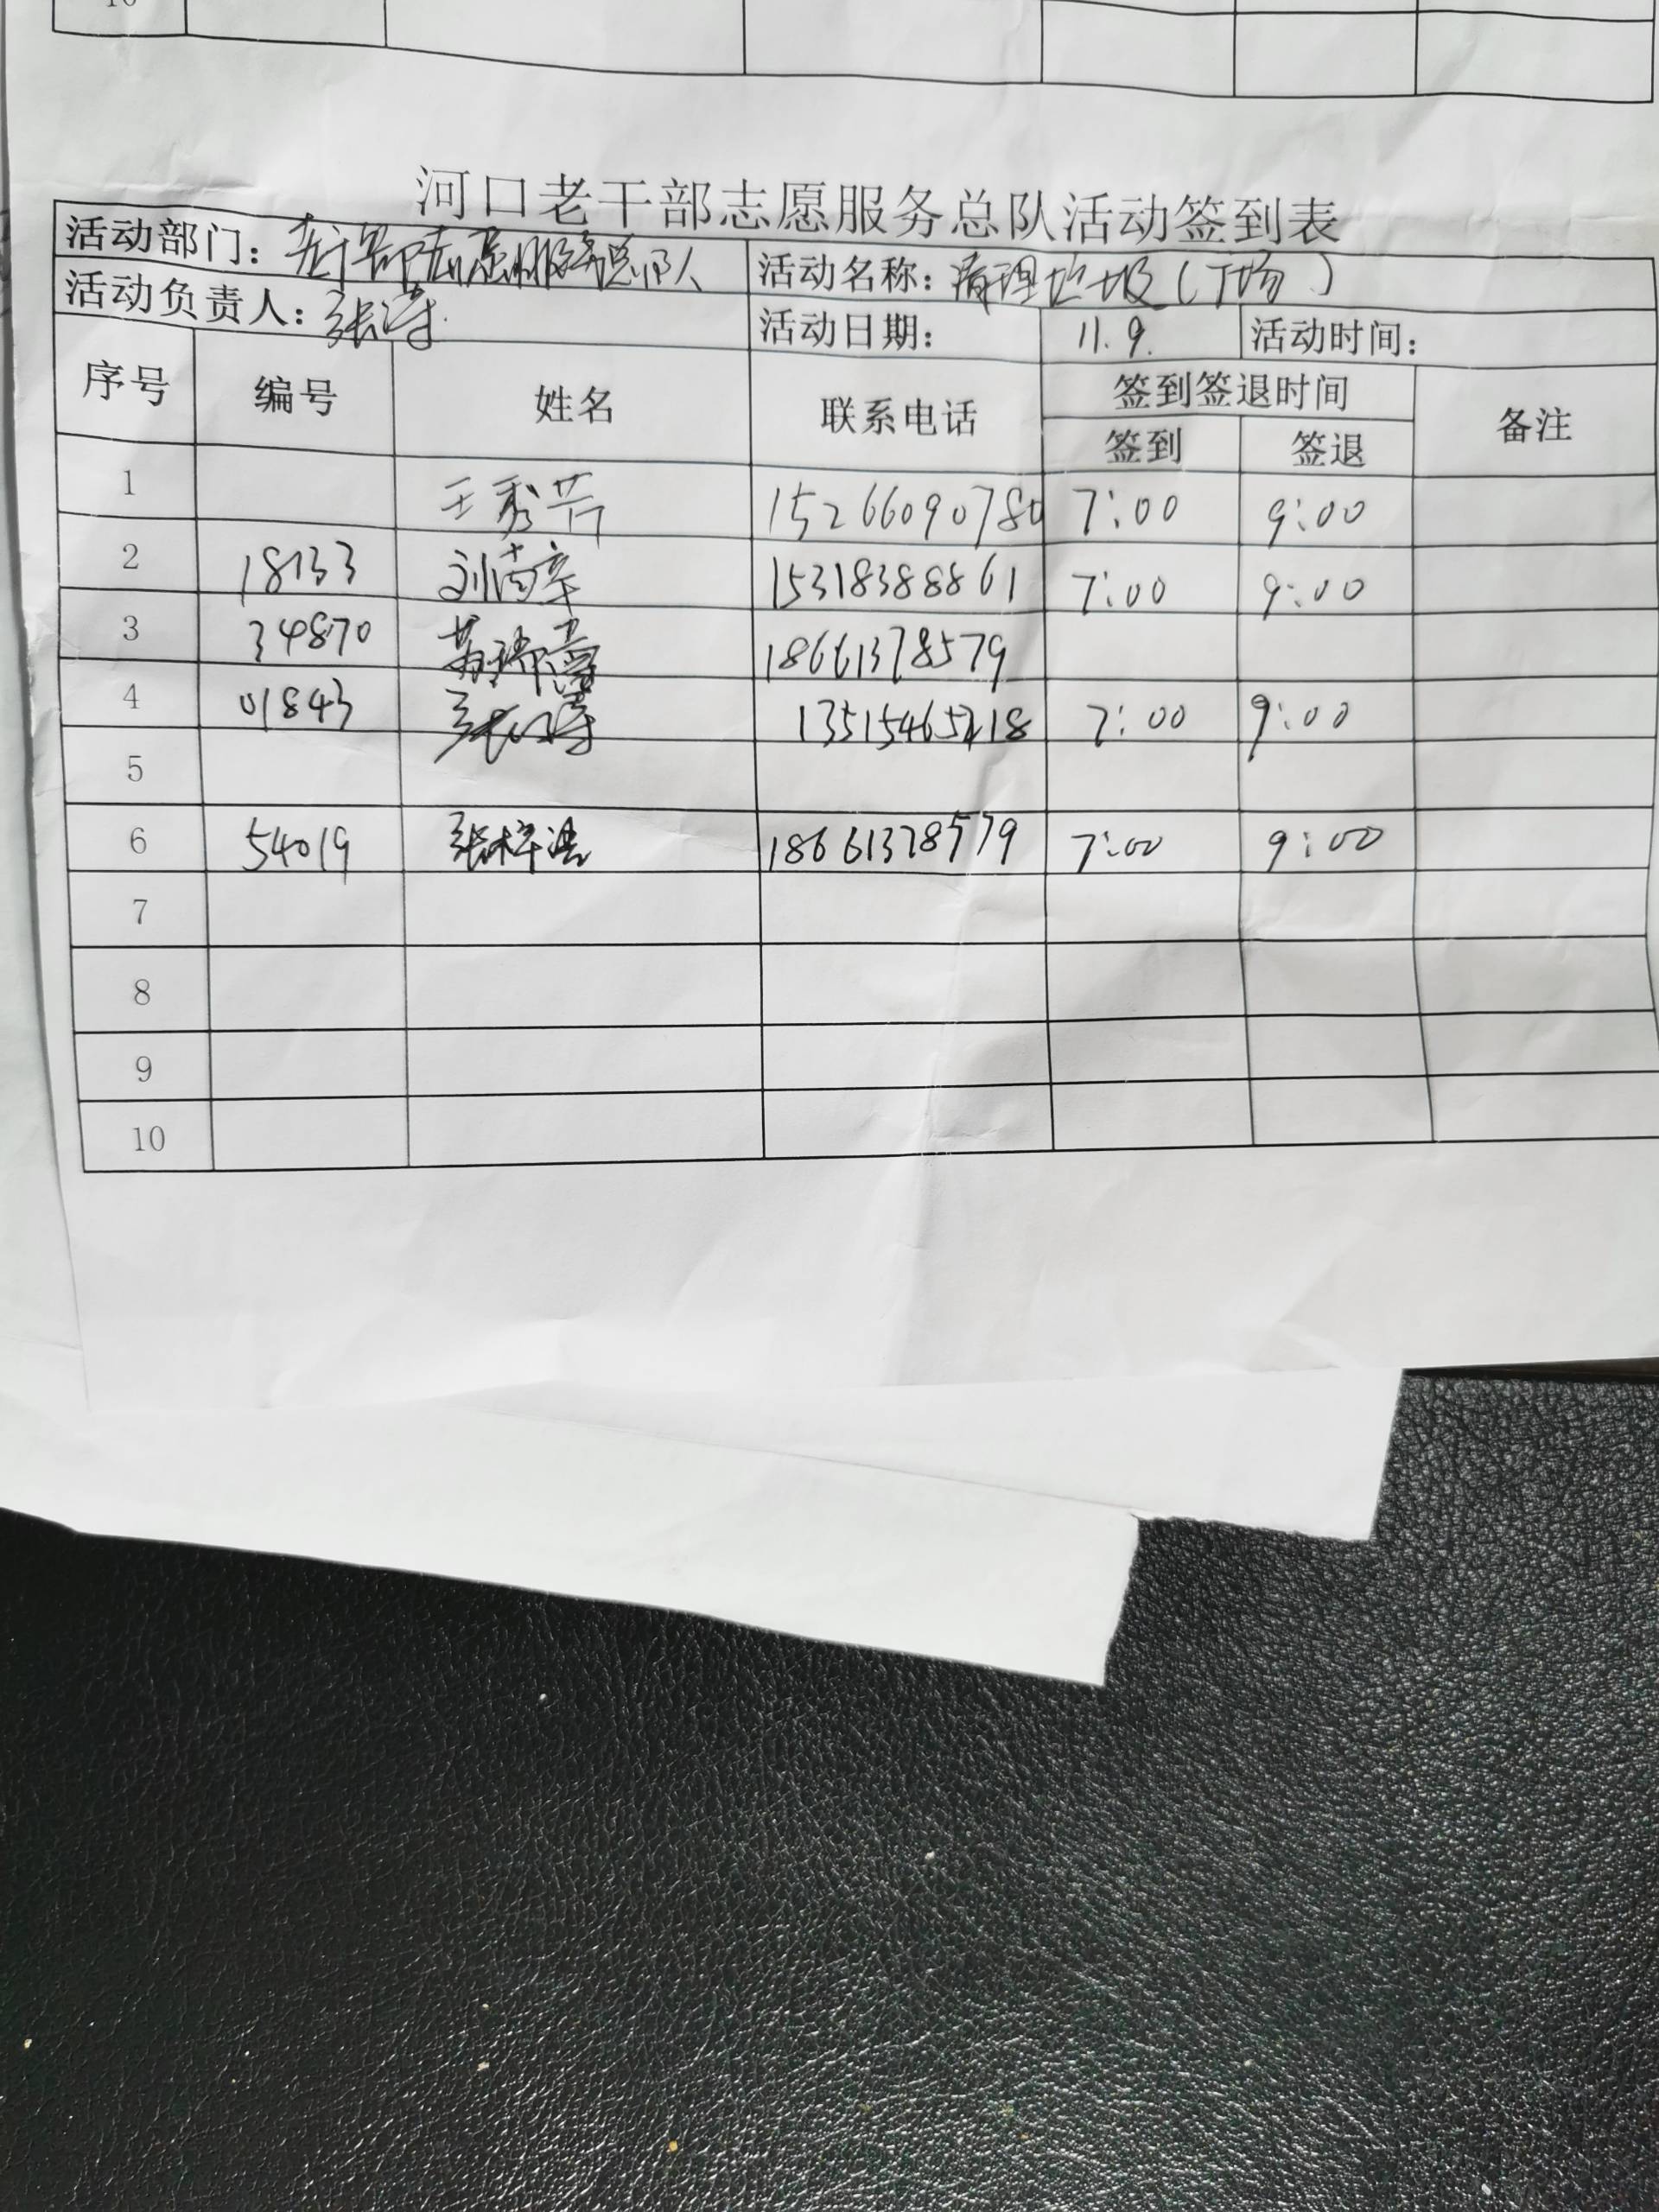 10
河口老干部志愿服务总队活动签到表
活动部门：老干部志愿服务总队 活动名称：清理垃圾（广场）
活动负责人：张涛 活动日期： 11.9. 活动时间：
序号 编号 姓名 联系电话 签到签退时间 备注
签到 签退
1 王秀芹 15266090780 7:00 9:00
2 18133 15318388861 7:00 9:00
3 34870 18661378579
4 01843 7:00 9:00
5
6 54019 张梓浩 18661378579 7:00 9:00
7
8
9
10